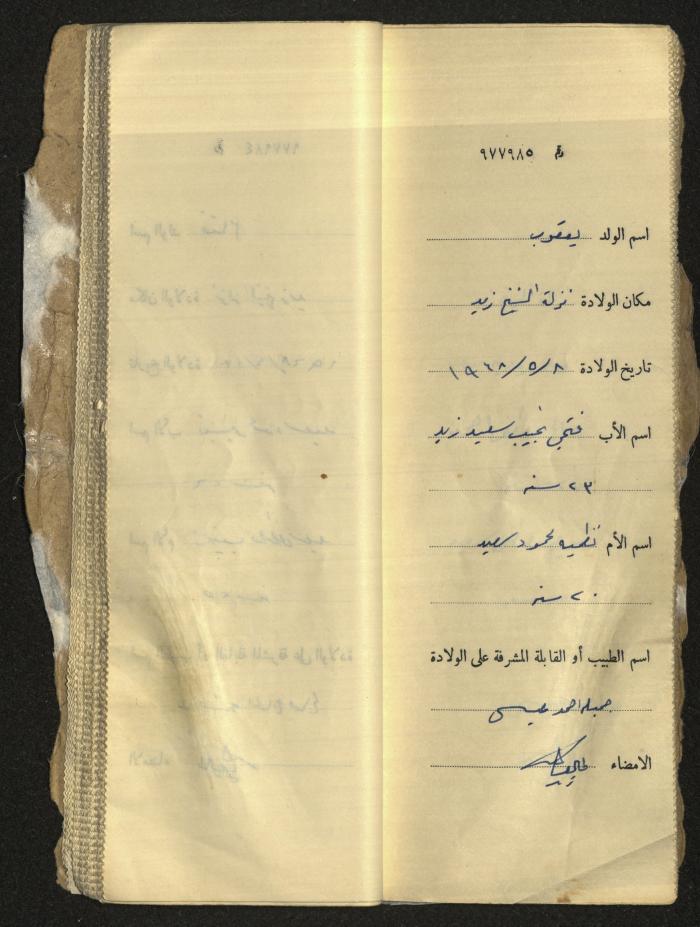 رقم ٩٧٧٩٨٥
اسم الولد يعقوب
مكان الولادة نزلة الشيخ زيد
تاريخ الولادة ٨/٥/١٩٦٨
اسم الأب فتحي نجيب سعيد زيد
٢٣ سنه
اسم الأم نظميه محمود سعيد
٢٠ سنه
اسم الطبيب أو القابلة المشرفة على الولادة
جميله احمد عيسى
الامضاء